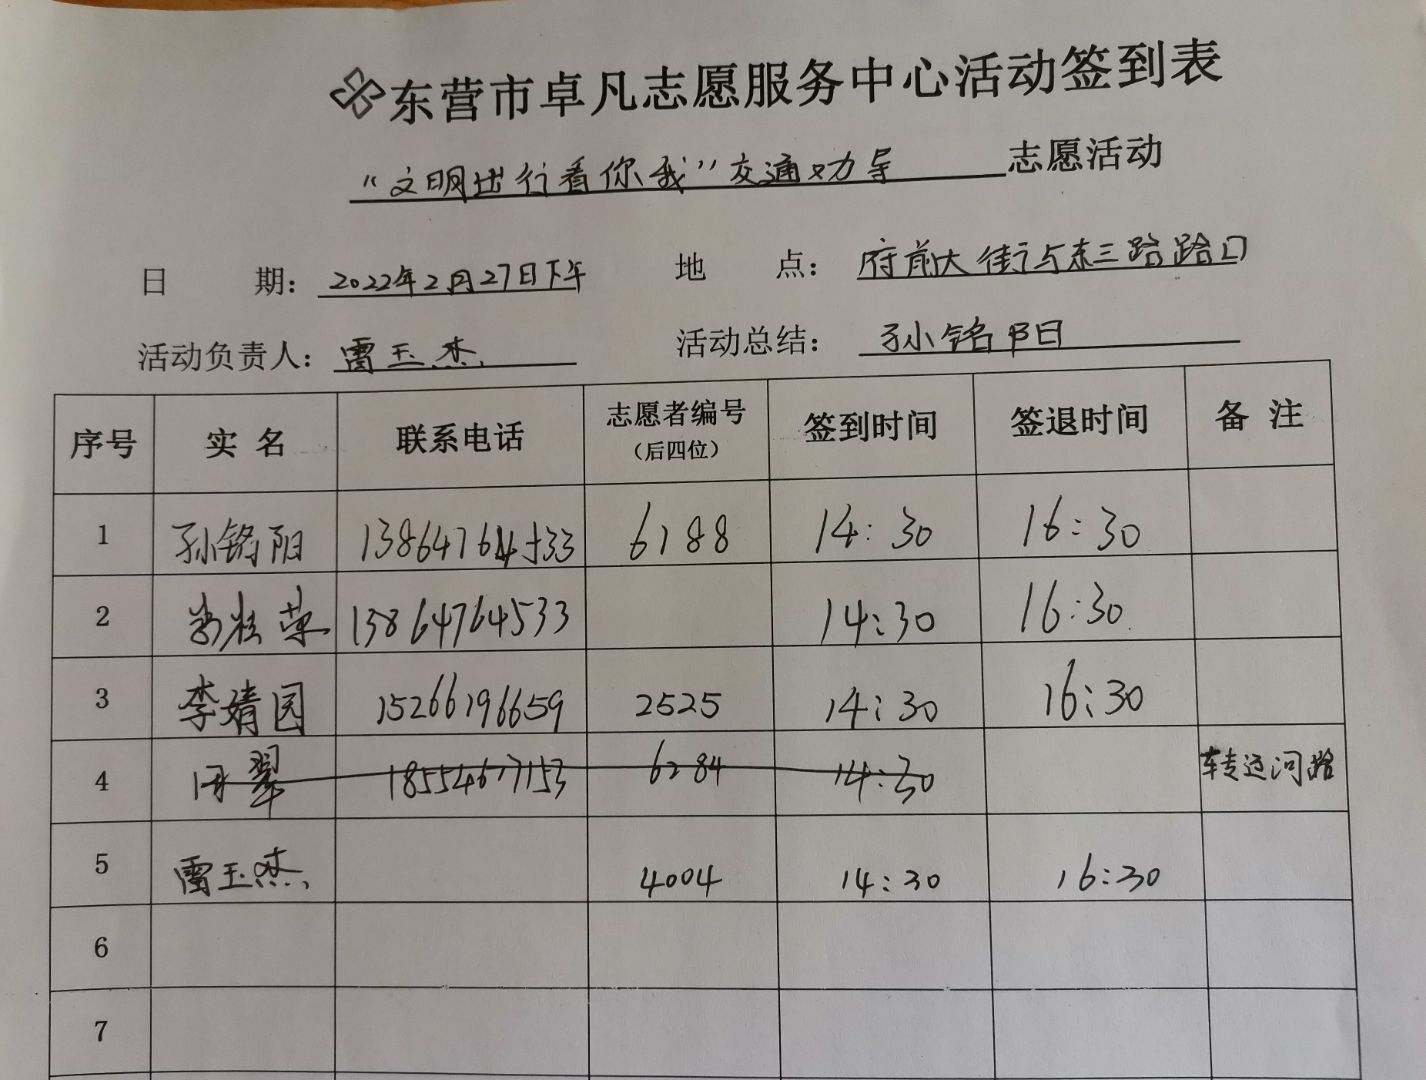 东营市卓凡志愿服务中心活动签到表
“文明出行看你我”交通劝导 志愿活动
日 期：2022年2月27日下午 地 点：府前大街与东三路路口
活动负责人：雷玉杰 活动总结：孙铭阳
序号 实名 联系电话 志愿者编号（后四位） 签到时间 签退时间 备注
1 孙铭阳 13864764533 6188 14:30 16:30
2 13864764533 14:30 16:30
3 李婧园 15266196659 2525 14:30 16:30
4 翠 18554677153 6284 14:30 转运河路
5 雷玉杰 4004 14:30 16:30
6
7